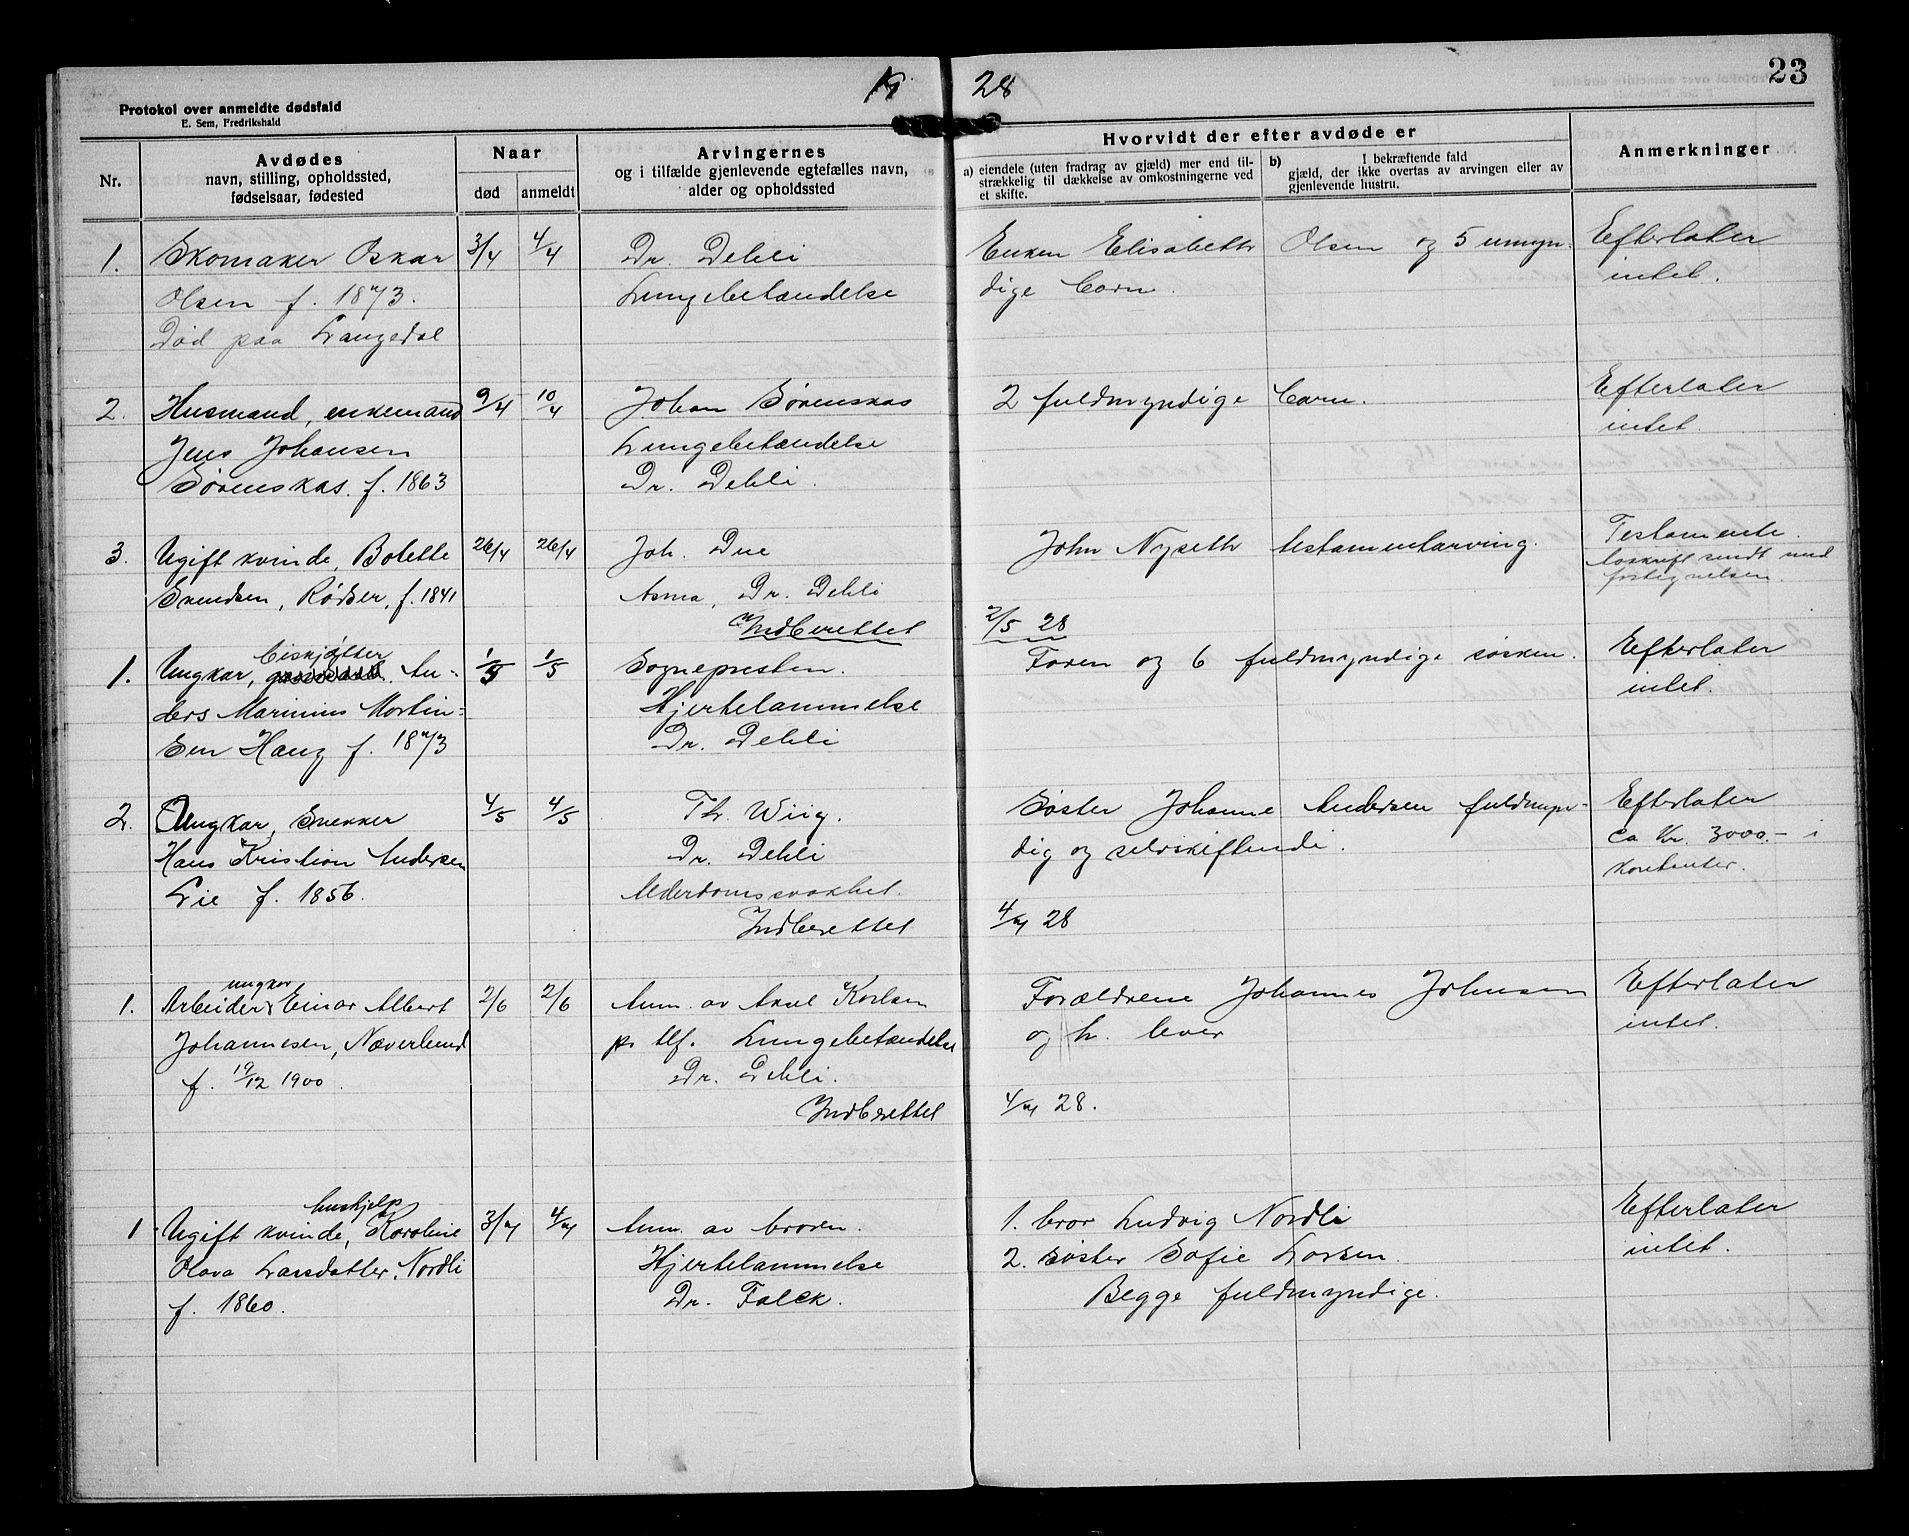 19 28
23
Protokol over anmeldte dødsfald
E. Sem, Fredrikshald
Nr.
Avdødes
navn, stilling, opholdssted,
fødselsaar, fødested
Naar
død
anmeldt
Arvingernes
og i tilfælde gjenlevende egtefælles navn,
alder og opholdssted
Hvorvidt der efter avdøde er
a) eiendele (uten fradrag av gjæld) mer end til-
strækkelig til dækkelse av omkostningerne ved
et skifte.
b) I bekræftende fald
gjæld, der ikke overtas av arvingen eller av
gjenlevende hustru.
Anmerkninger
1. Skomaker Oskar 3/4 4/4 Dr. Dehli Enken Elisabeth Olsen og 5 umyn- Efterlater
Olsen f. 1873. Lungebetændelse dige born. intet.
Død paa Langedal
2. Husmand, enkemand 9/4 10/4 Johan Sørenskas 2 fuldmyndige born. Efterlater
Jens Johansen Lungebetændelse intet.
Sørenskas. f. 1863 Dr. Dehli.
3. Ugift kvinde, Bolette 26/4 26/4 Joh. Due John Nyseth testamentarving. Testamente.
Svendsen, Rødser, f. 1841 Asma, Dr. Dehli avskrift sendt med
fortegnelsen.
Indberettet 2/5 28
biskjøtter
1. Ungkar, An- 1/5 1/5 Sognepresten. Faren og 6 fuldmyndige søsken. Efterlater
ders Marinius Martin- Hjertelammelse intet.
sen Haug f. 1873 Dr. Dehli
2. Ungkar, Snekker 4/5 4/5 Th. Wiig. Søster Johanne Andersen fuldmyn- Efterlater
Hans Kristian Andersen Dr. Dehli dig og selvskiftende. ca Kr. 3000.- i
Lie f. 1856. Alderdomssvakhet. kontanter.
Indberettet 4/7 28
ungkar
1. Arbeider Einar Albert 2/6 2/6 Anm. av Axel Karlsen Forældrene Johannes Johnsen Efterlater
Johannesen, Næverlund pr tlf. Lungebetændelse og h. lever intet.
f. 19/12 1900. Dr. Dehli.
Indberettet 4/7 28.
hushjelp
1. Ugift kvinde, Karoline 3/7 4/7 Anm. av broren. 1. bror Ludvig Nordli Efterlater
Olava Larsdatter, Nordli Hjertelammelse 2. søster Sofie Larsen. intet.
f. 1860. Dr. Falck. Begge fuldmyndige.